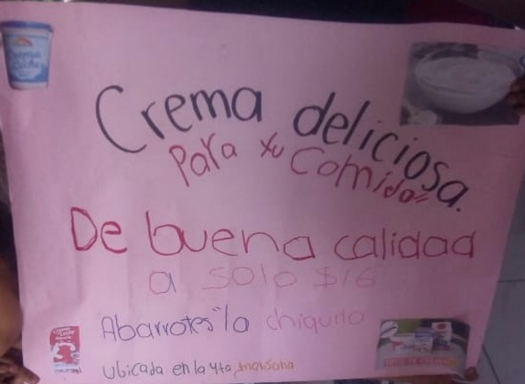 Crema deliciosa.
Para tu Comida"
De buena calidad
a solo $16
Abarrotes "la chiquita
Ubicada en la 4ta